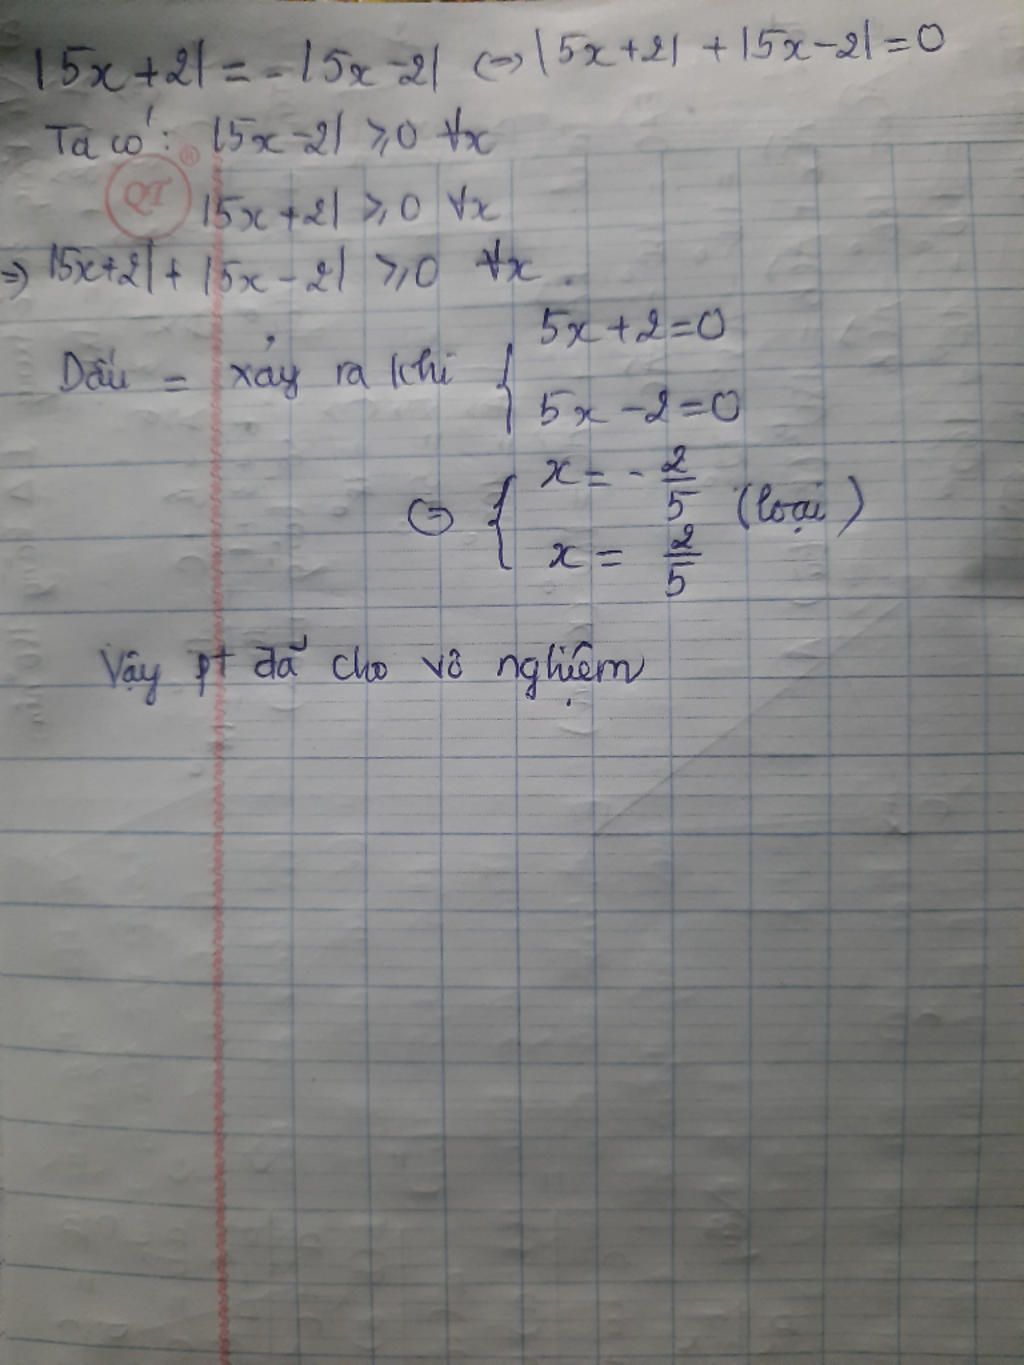 |5x+2| = -|5x-2| ⇔ |5x+2| + |5x-2| = 0
Ta có: |5x-2| ≥ 0 ∀x
QT ®
|5x+2| ≥ 0 ∀x
⇒ |5x+2| + |5x-2| ≥ 0 ∀x.
Dấu = xảy ra khi { 5x+2=0
5x-2=0
⇔ { x = -2/5 (loại)
x = 2/5
Vậy pt đã cho vô nghiệm